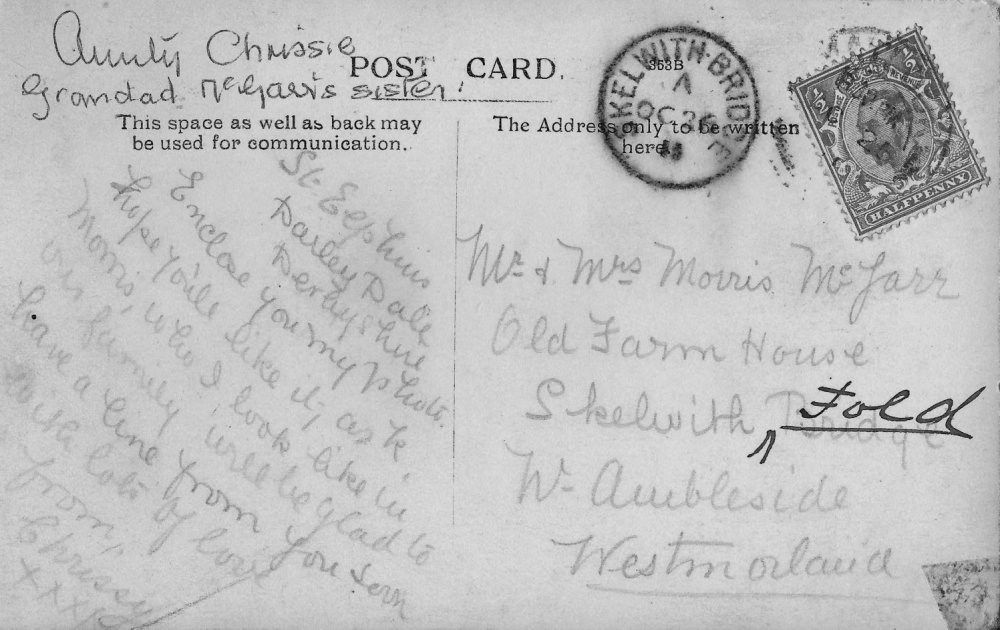 Aunty Chrissie
Grandad McGarr's sister.
POST CARD.
This space as well as back may
be used for communication.
The Address only to be written
here.
353B
SKELWITH-BRIDGE
A
OC 26
11
HALFPENNY
St. Elphins
Darley Dale
Derbyshire
Enclose you my photo.
hope you'll like it, ask,
Morris, who I look like in
our family, will be glad to
have a line from you soon
with lots of love
from,
Chrissy
xxxx
Mr & Mrs Morris McGarr
Old Farm House
Skelwith Fold Bridge
Nr Ambleside
Westmorland